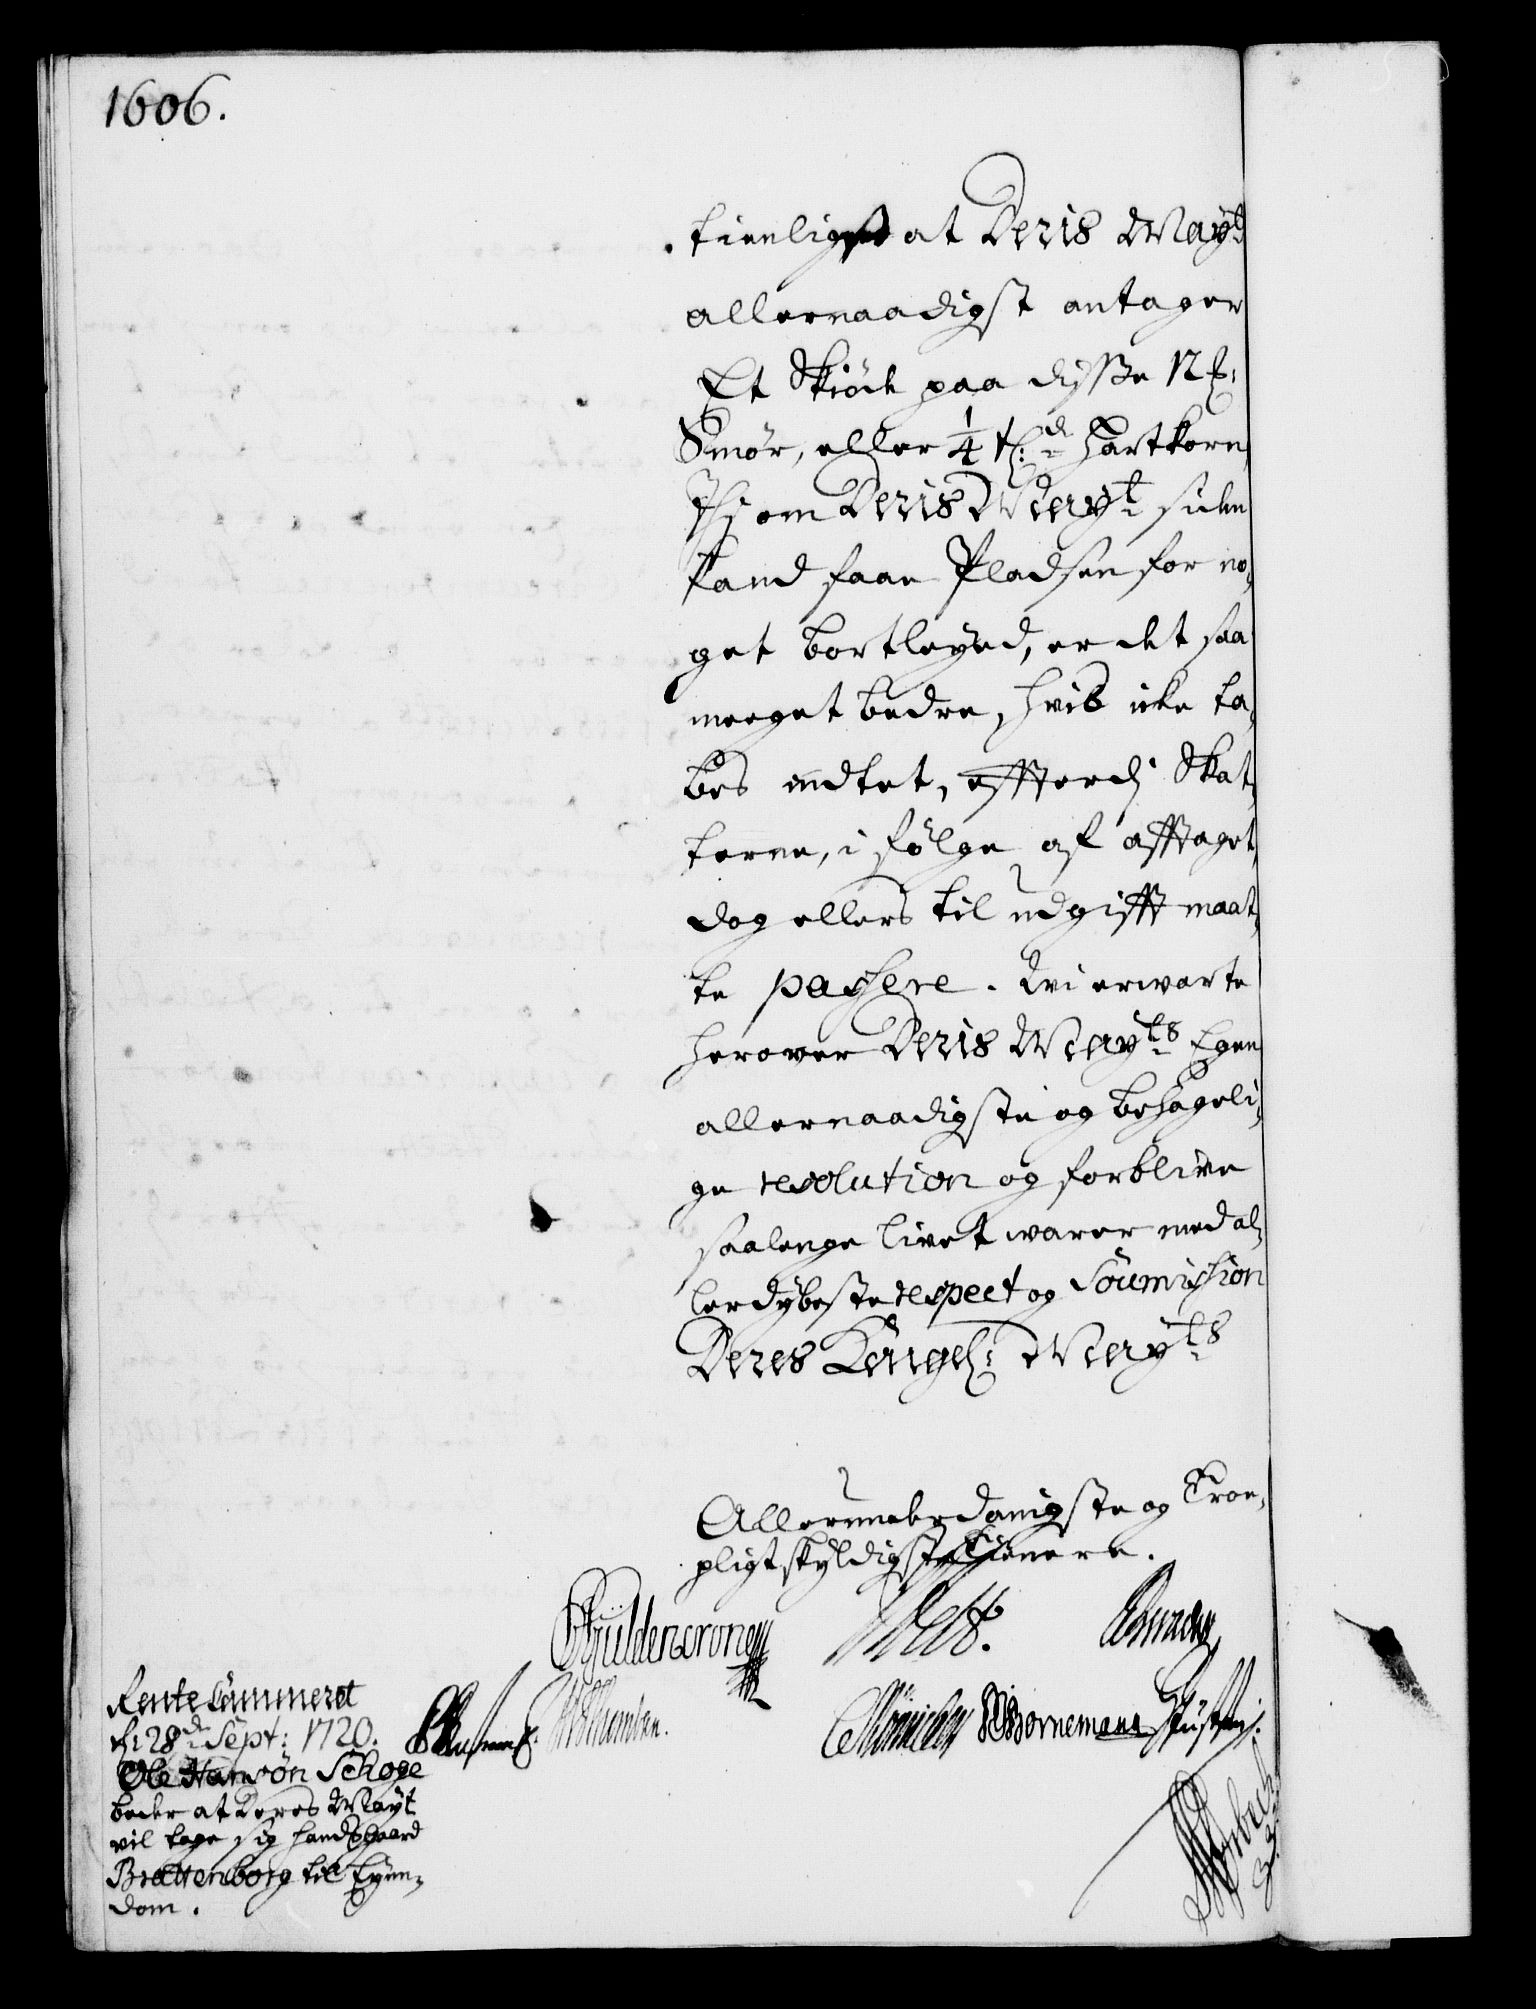 1606.
tienligst at Deris Mayt
allernaadigst antager
Et Skiöde paa disse 12 ℔:
Smör, eller 1/4 td: Hartkorn,
Thi om Deris Mayt siden
kand faae Pladsen for no,
get bortleyed, er det saa
meeget bedre, hvis icke ta,
bes indtet, efftterdj Skat,
terne, i fölge af afftaget,
dog ellers til udgifft maat,
te passere. Wi erwarte
herover Deris Mayts Egen
allernaadigste og behageli,
ge resolution og forblive
saalenge livet warer med al,
lerdybeste respect og Soumission
Deres Kongel: Mayts
Allerunderdanigste og Troe,
pligtskyldigste tienere.
Güldencrone
CMöinichen Bornemann
Rentekammeret
d: 28de Sept: 1720.
Ole Hansön Schoge
beder at Deres Mayt
vil tage sig hands Gaard
Brattenborg til Eyen,
dom.